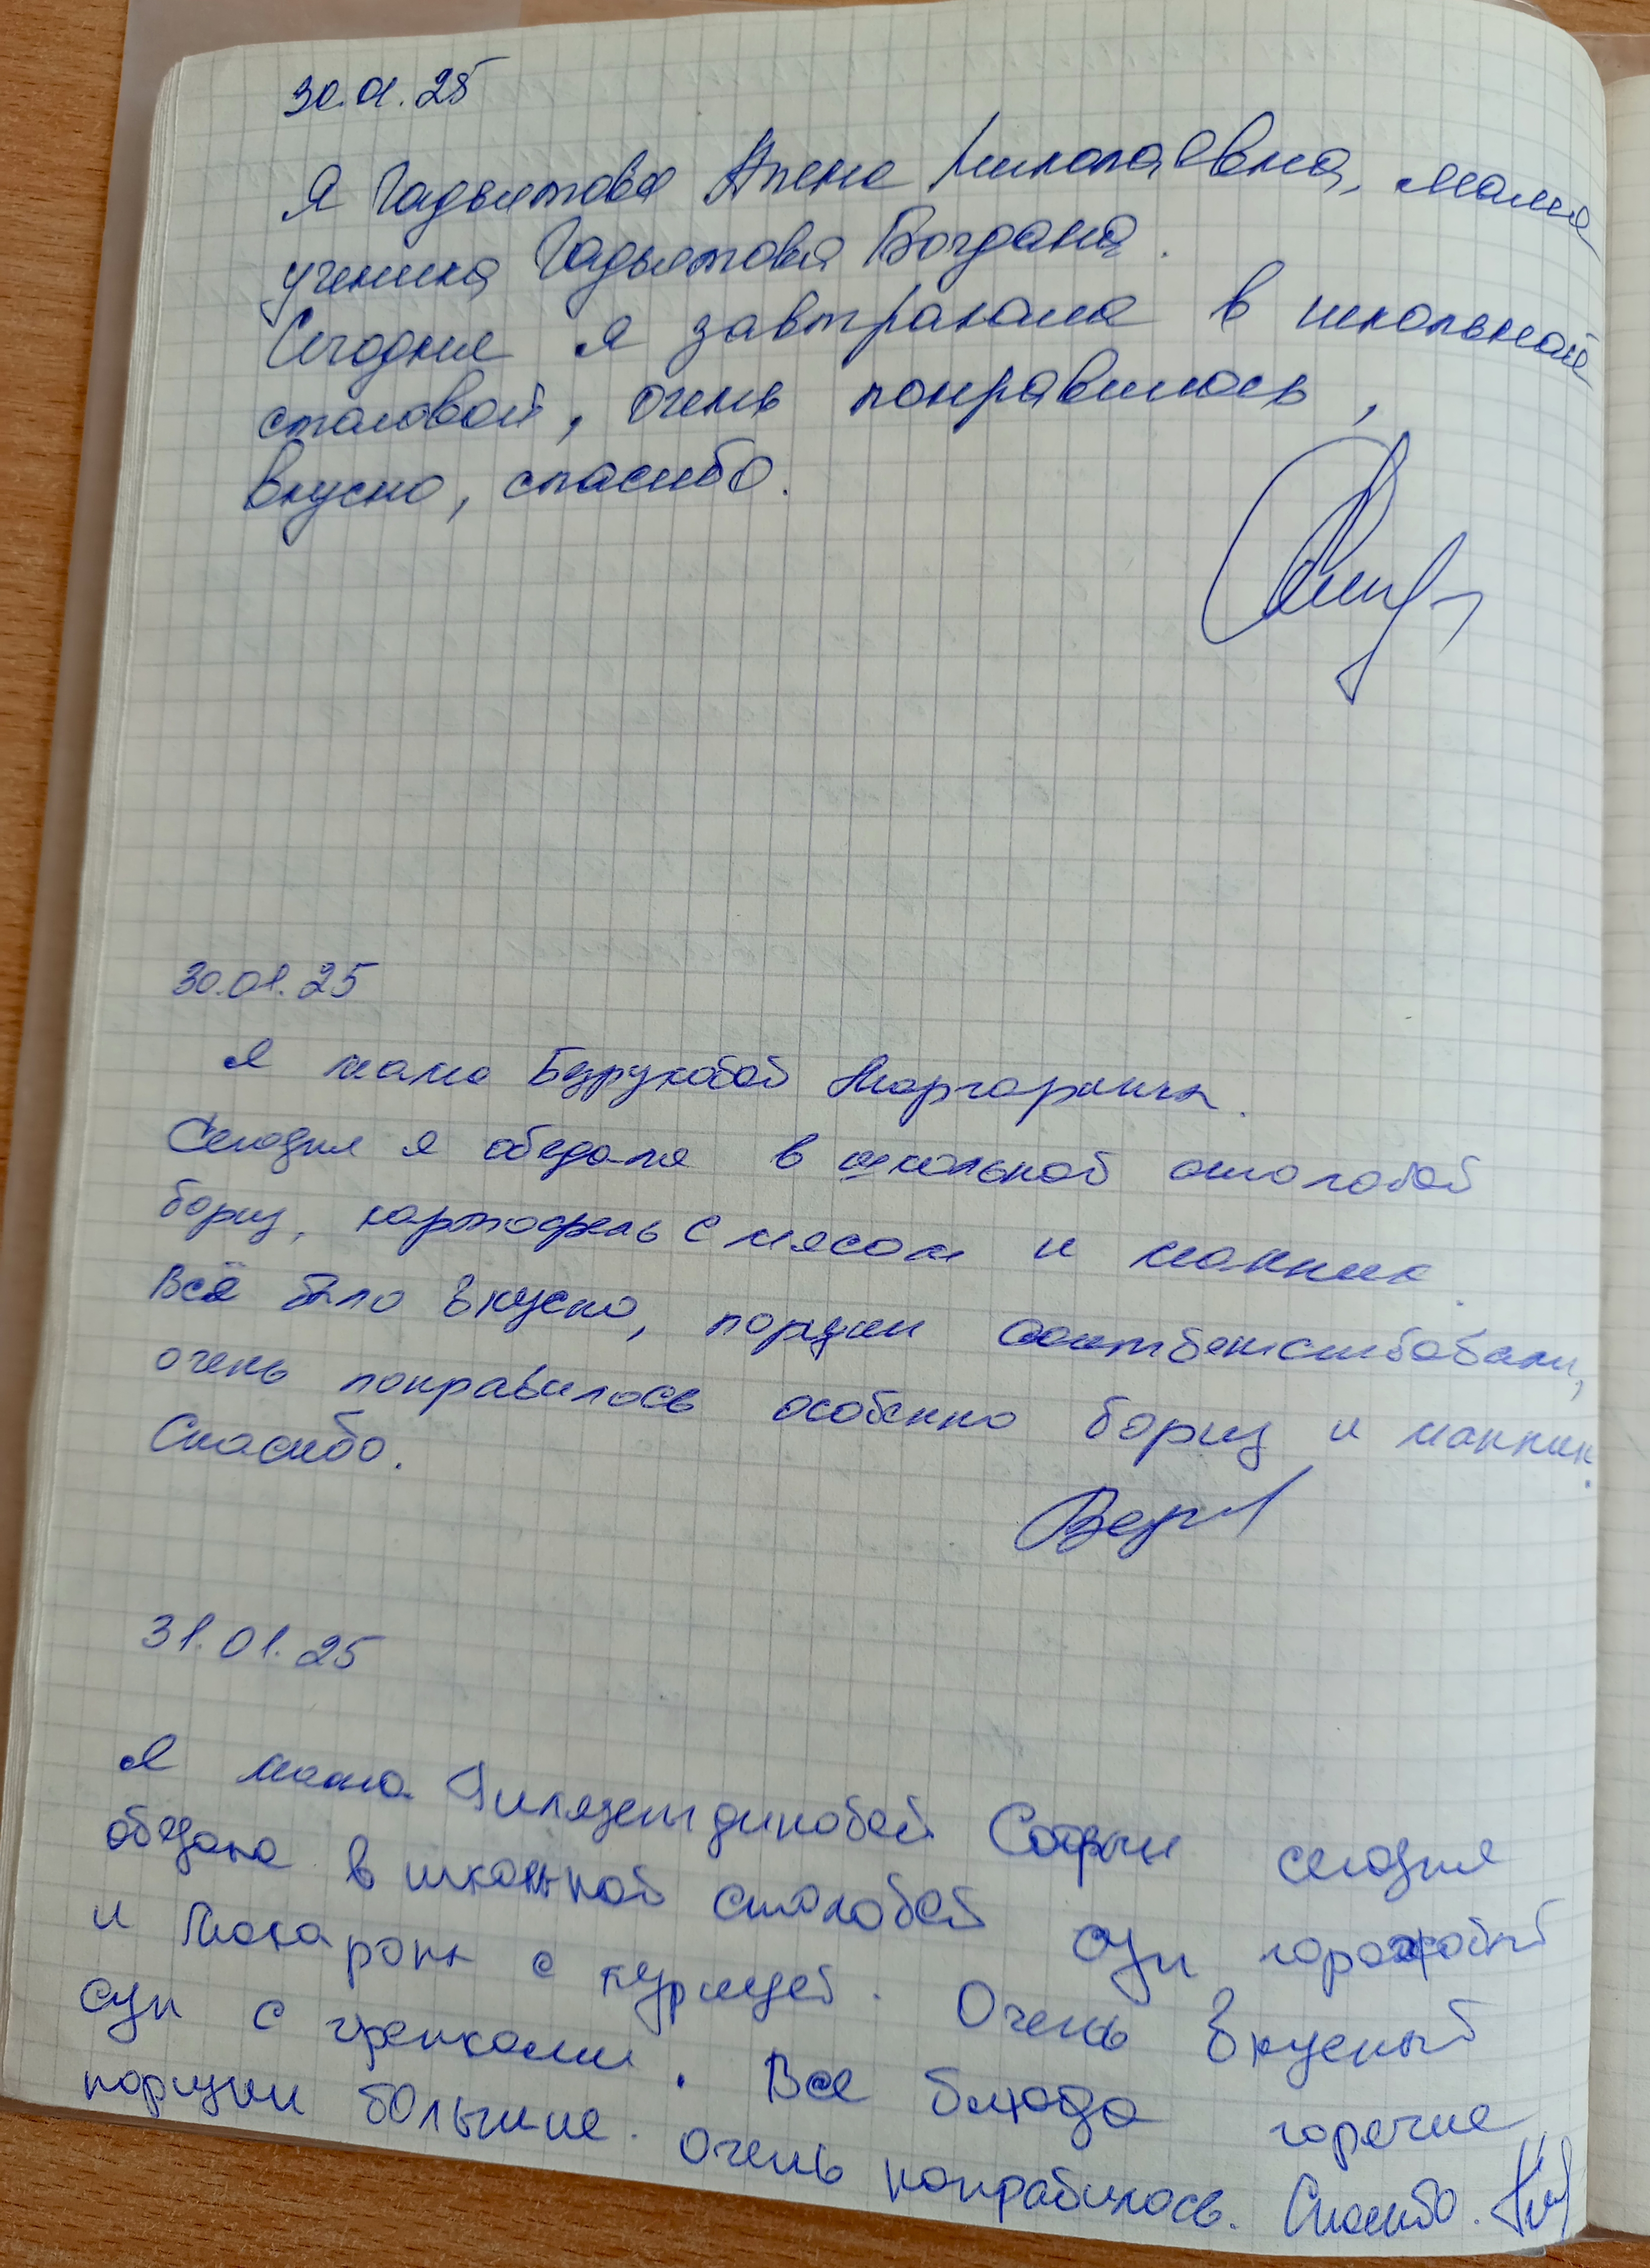 30.01.25
Я Гадыятова Алена Николаевна, мама
ученика Гадыятова Богдана.
Сегодня я завтракала в школьной
столовой, очень понравилось,
вкусно, спасибо.
30.01.25
Я мама Безруковой Маргариты.
Сегодня я обедала в школьной столовой
борщ, картофель с мясом и манник.
Всё было вкусно, порции соответствовали,
очень понравилось особенно борщ и манник.
Спасибо.
31.01.25
Я мама Гилязетдиновой Софьи сегодня
обедала в школьной столовой суп гороховый
и макароны с курицей. Очень вкусный
суп с гренками. Все блюда горячие
порции большие. Очень понравилось. Спасибо.